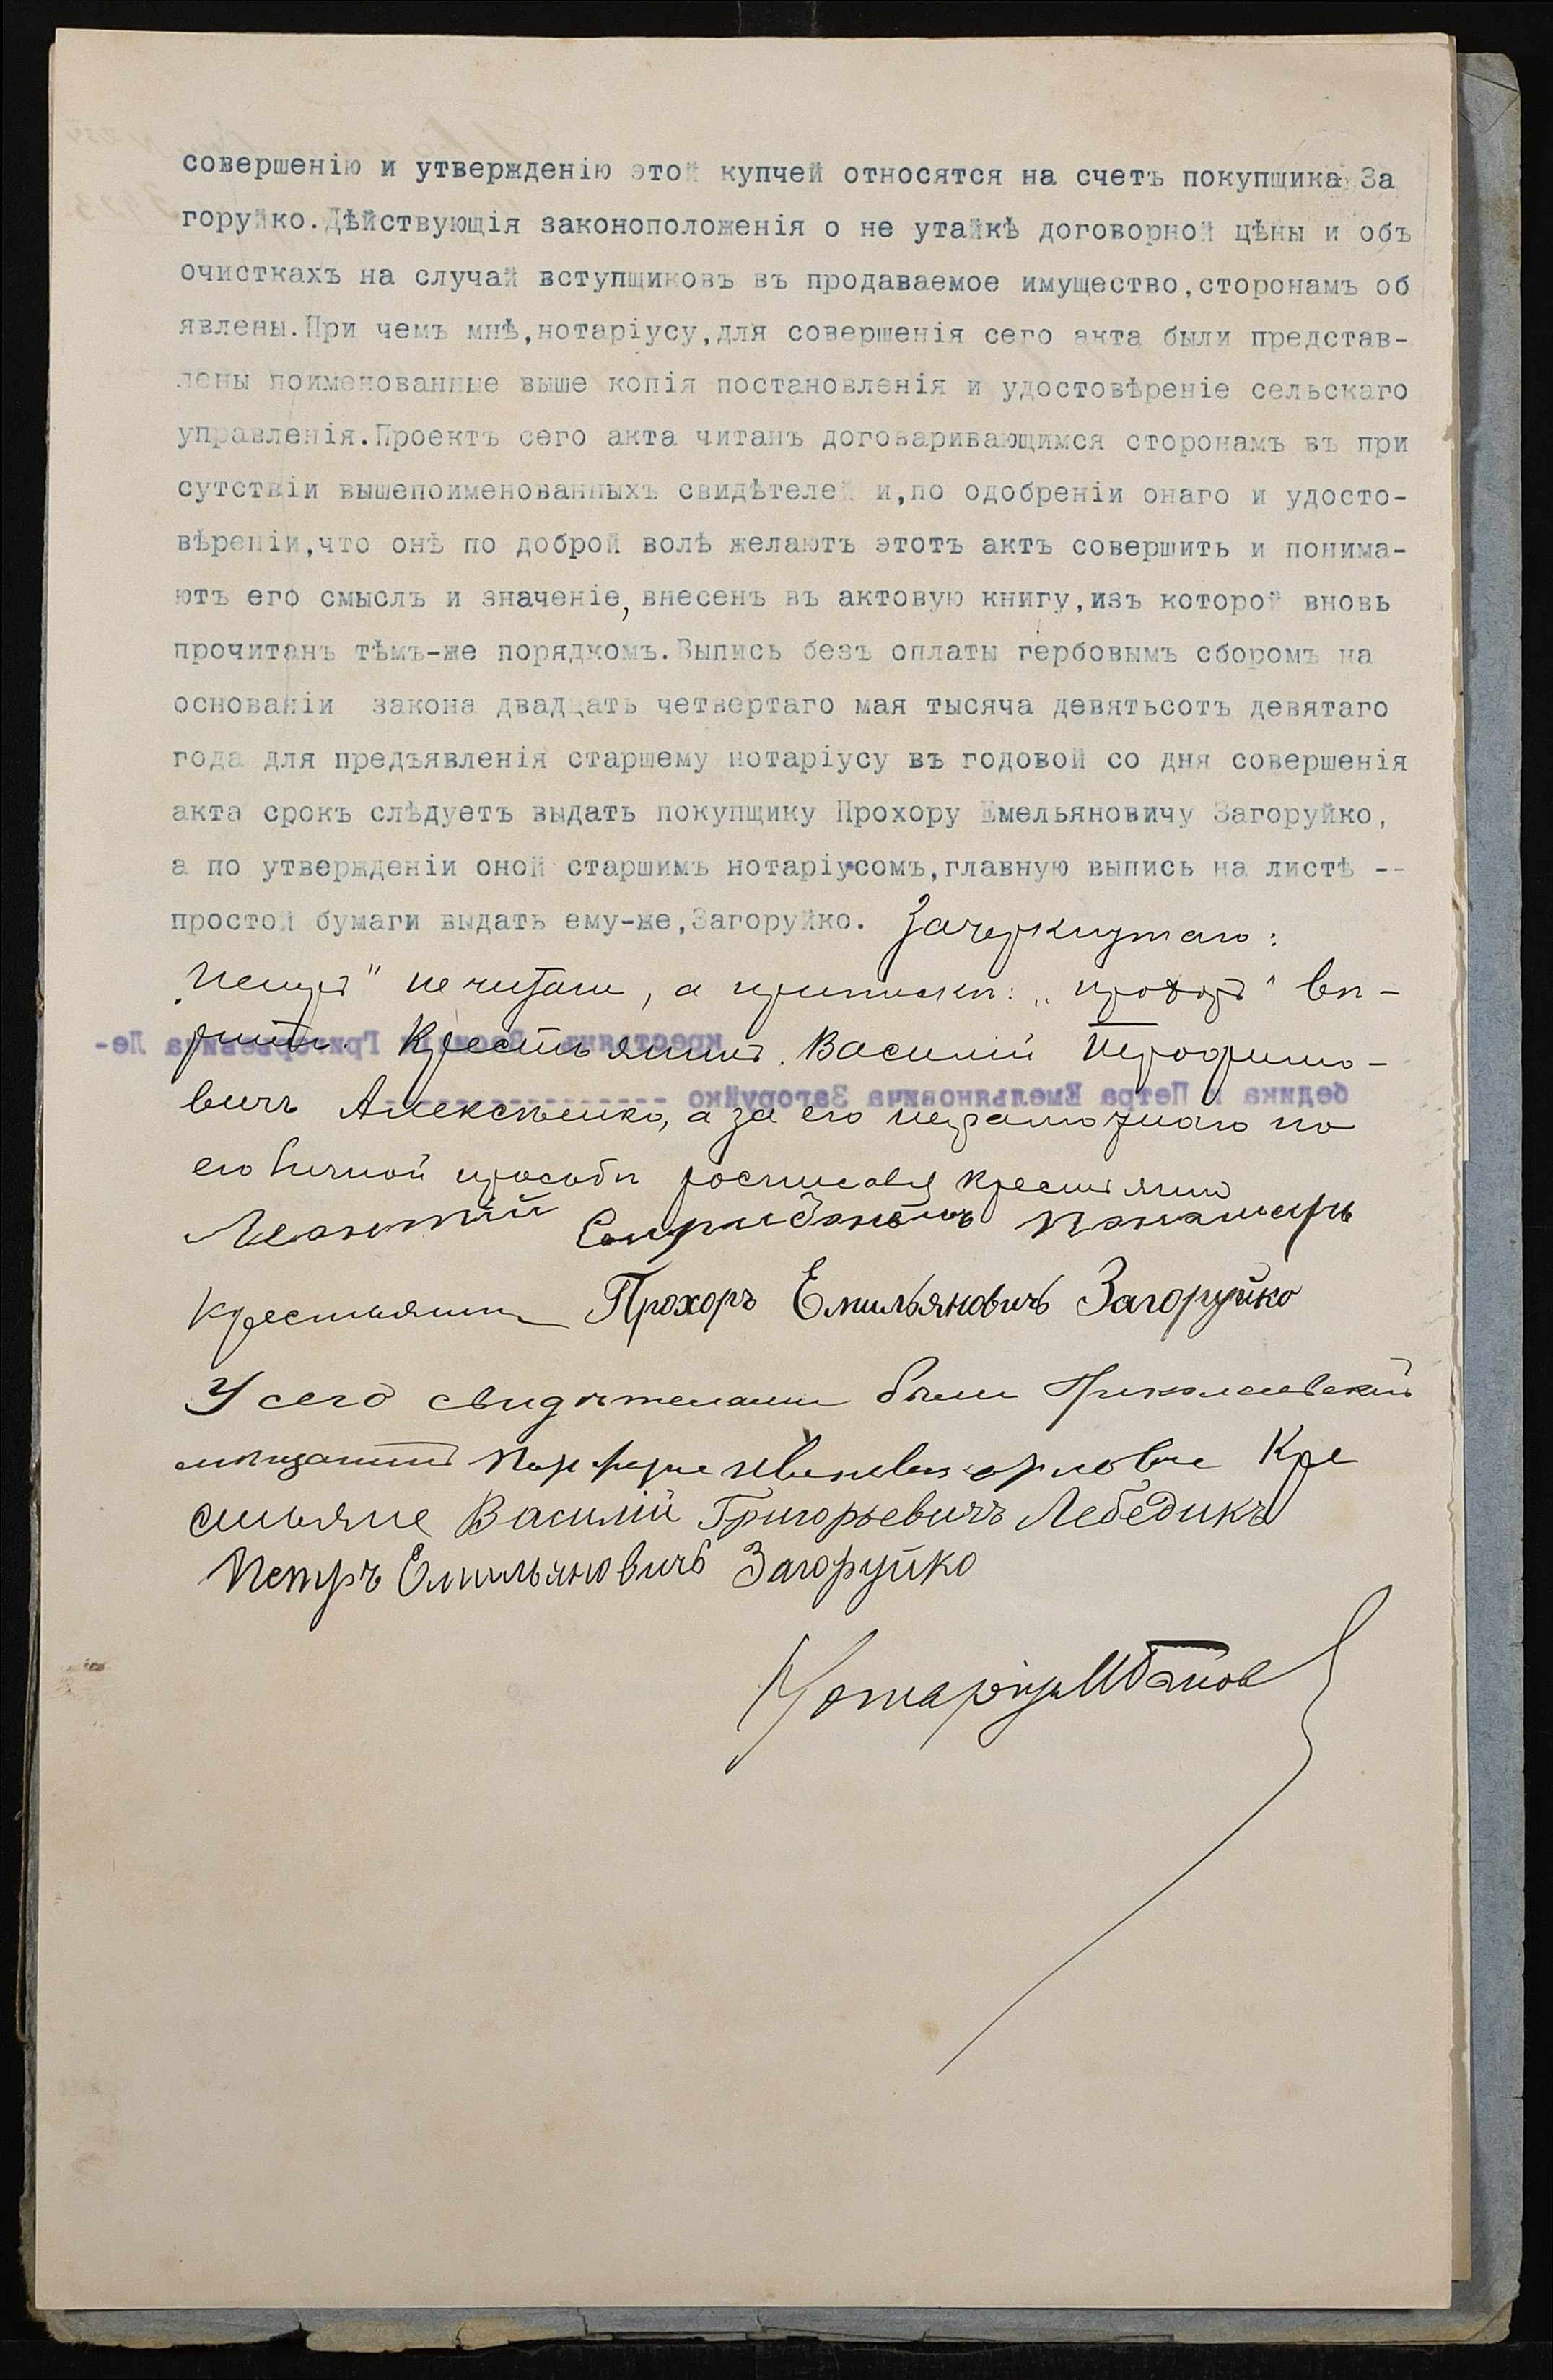 совершенію и утвержденію этой купчей относятся на счетъ покупщика За
горуйко.Дѣйствующія законоположенія о не утайкѣ договорной цѣны и объ
очисткахъ на случай вступщиковъ въ продаваемое имущество,сторонамъ об
явлены.При чемъ мнѣ,нотаріусу,для совершенія сего акта были представ-
лены поименованные выше копія постановленія и удостовѣреніе сельскаго
управленія.Проектъ сего акта читанъ договаривающимся сторонамъ въ при
сутствіи вышепоименованныхъ свидѣтелей и,по одобреніи онаго и удосто-
вѣреніи,что онѣ по доброй волѣ желаютъ этотъ актъ совершить и понима-
ютъ его смыслъ и значеніе, внесенъ въ актовую книгу,изъ которой вновь
прочитанъ тѣмъ-же порядкомъ.Выпись безъ оплаты гербовымъ сборомъ на
основаніи закона двадцать четвертаго мая тысяча девятьсотъ девятаго
года для предъявленія старшему нотаріусу въ годовой со дня совершенія
акта срокъ слѣдуетъ выдать покупщику Прохору Емельяновичу Загоруйко,
а по утвержденіи оной старшимъ нотаріусомъ,главную выпись на листѣ --
простой бумаги выдать ему-же,Загоруйко. Зачеркнутаго:
„Петръ" не читать, а приписки: „Прохоръ" вѣ-
рить. Крестьянинъ Василій Трофимо-
вичъ Алексѣенко, а за его неграмотнаго по
его личной просьбѣ росписался крестьянинъ
Леонтій Спиридоновичъ
крестьянин Прохоръ Емильяновичъ Загоруйко
У сего свидѣтелями были Николаевскій
мѣщанинъ Кре
стьяне Василій Григорьевичъ Лебедикъ
Петръ Емильяновичъ Загоруйко
Нотаріусъ Ивановъ